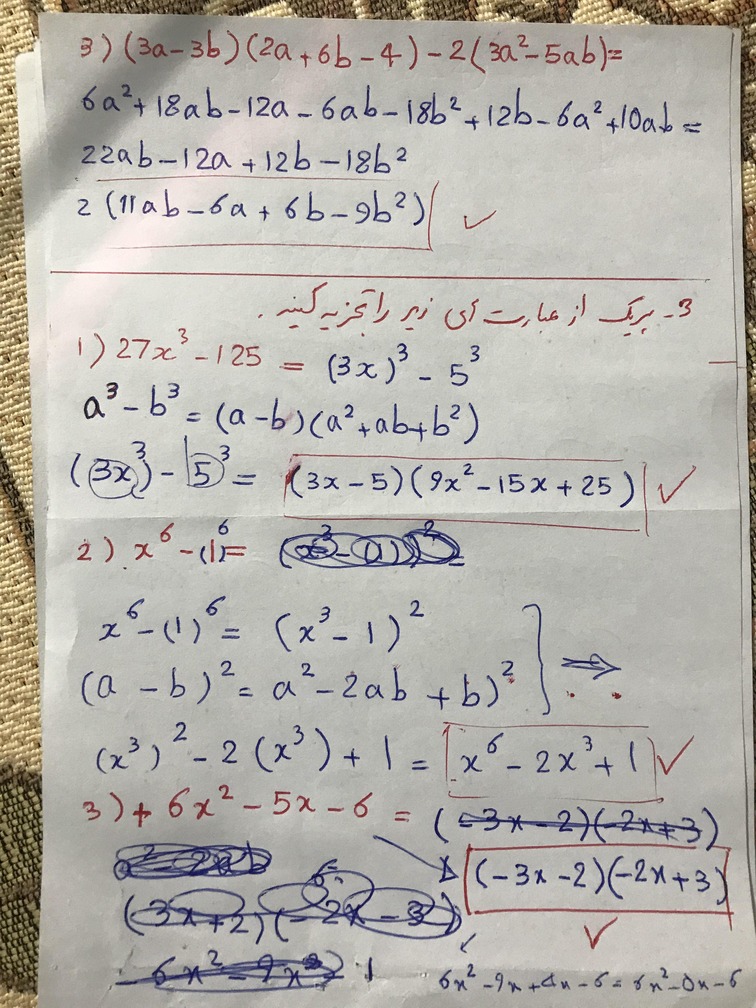 3) (3a-3b)(2a+6b-4)-2(3a²-5ab)=
6a²+18ab-12a-6ab-18b²+12b-6a²+10ab=
22ab-12a+12b-18b²
2(11ab-6a+6b-9b²) ✓
3- هریک از عبارت های زیر را تجزیه کنید.
1) 27x³-125 = (3x)³-5³
a³-b³=(a-b)(a²+ab+b²)
(3x)³-5³= (3x-5)(9x²-15x+25) ✓
2) x⁶-(1)⁶=
x⁶-(1)⁶= (x³-1)²
(a-b)²= a²-2ab+b)² } ⇒
(x³)²-2(x³)+1= x⁶-2x³+1 ✓
3) + 6x²-5x-6 = (-3x-2)(-2x+3)
(-3x-2)(-2x+3) ✓
(3x+2)(-2x-3)
6x²-9x+4x-6=6x²-5x-6